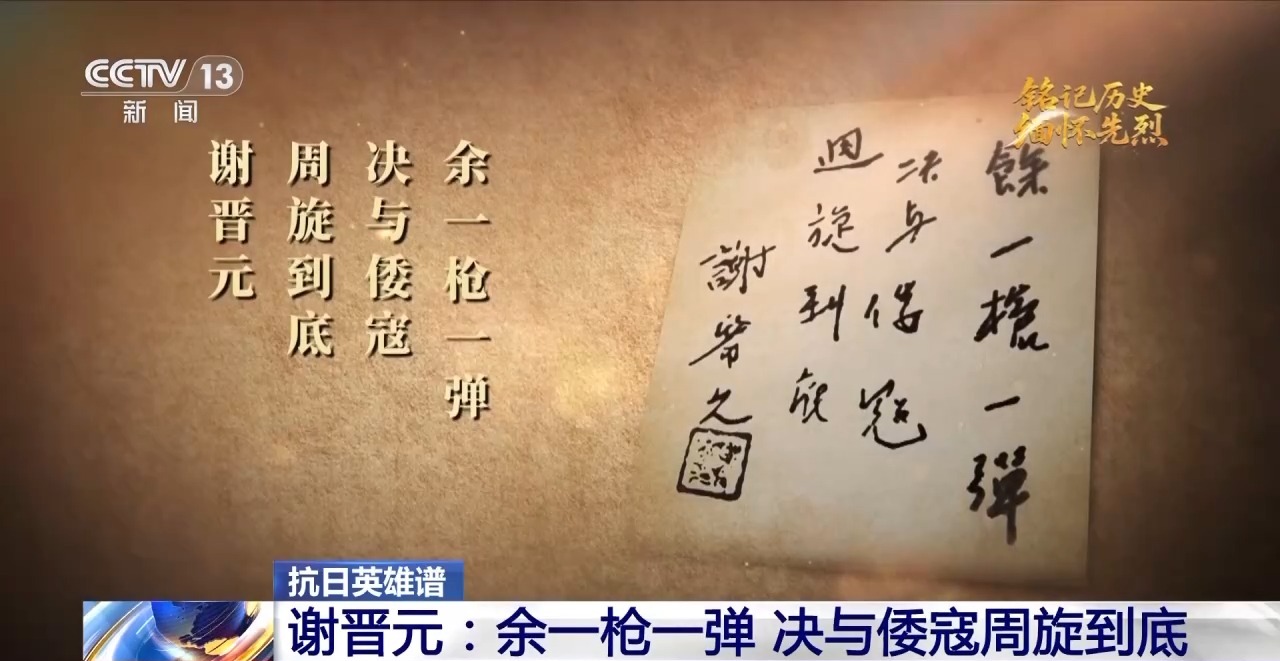 CCTV 13
新闻
铭记历史
缅怀先烈
余一枪一弹
决与倭寇
周旋到底
谢晋元
餘一槍一彈
决与倭寇
週旋到底
謝晋元
抗日英雄谱
谢晋元：余一枪一弹 决与倭寇周旋到底